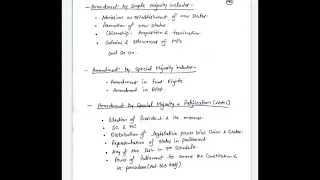 → Amendment by Simple majority include:-
• Admission or establishment of new States.
• Formation of new States
• Citizenship- Acquisition & termination.
• Salaries & allowances of MPs
and so on.
→ Amendment by Special Majority include-
• Amendment in Fund. Rights
• Amendment in DPSP.
→ Amendment by Special Majority & Ratification (
• Election of President & its manner.
• SC & HC
• Distribution of legislative power b/w Union & States.
• Representation of States in parliament
• Any of the lists in 7th Schedule.
• Power of Parliament to amend the Constitution &
its procedure (Art 368 itself)